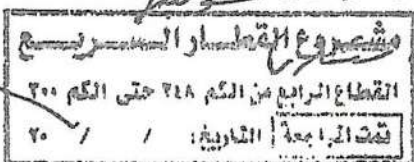 مشروع القطار السريع
القطاع الرابع من الكم ٢٤٨ حتى الكم ٣٠٠
تمت المراجعة التاريخ: / / ٢٠